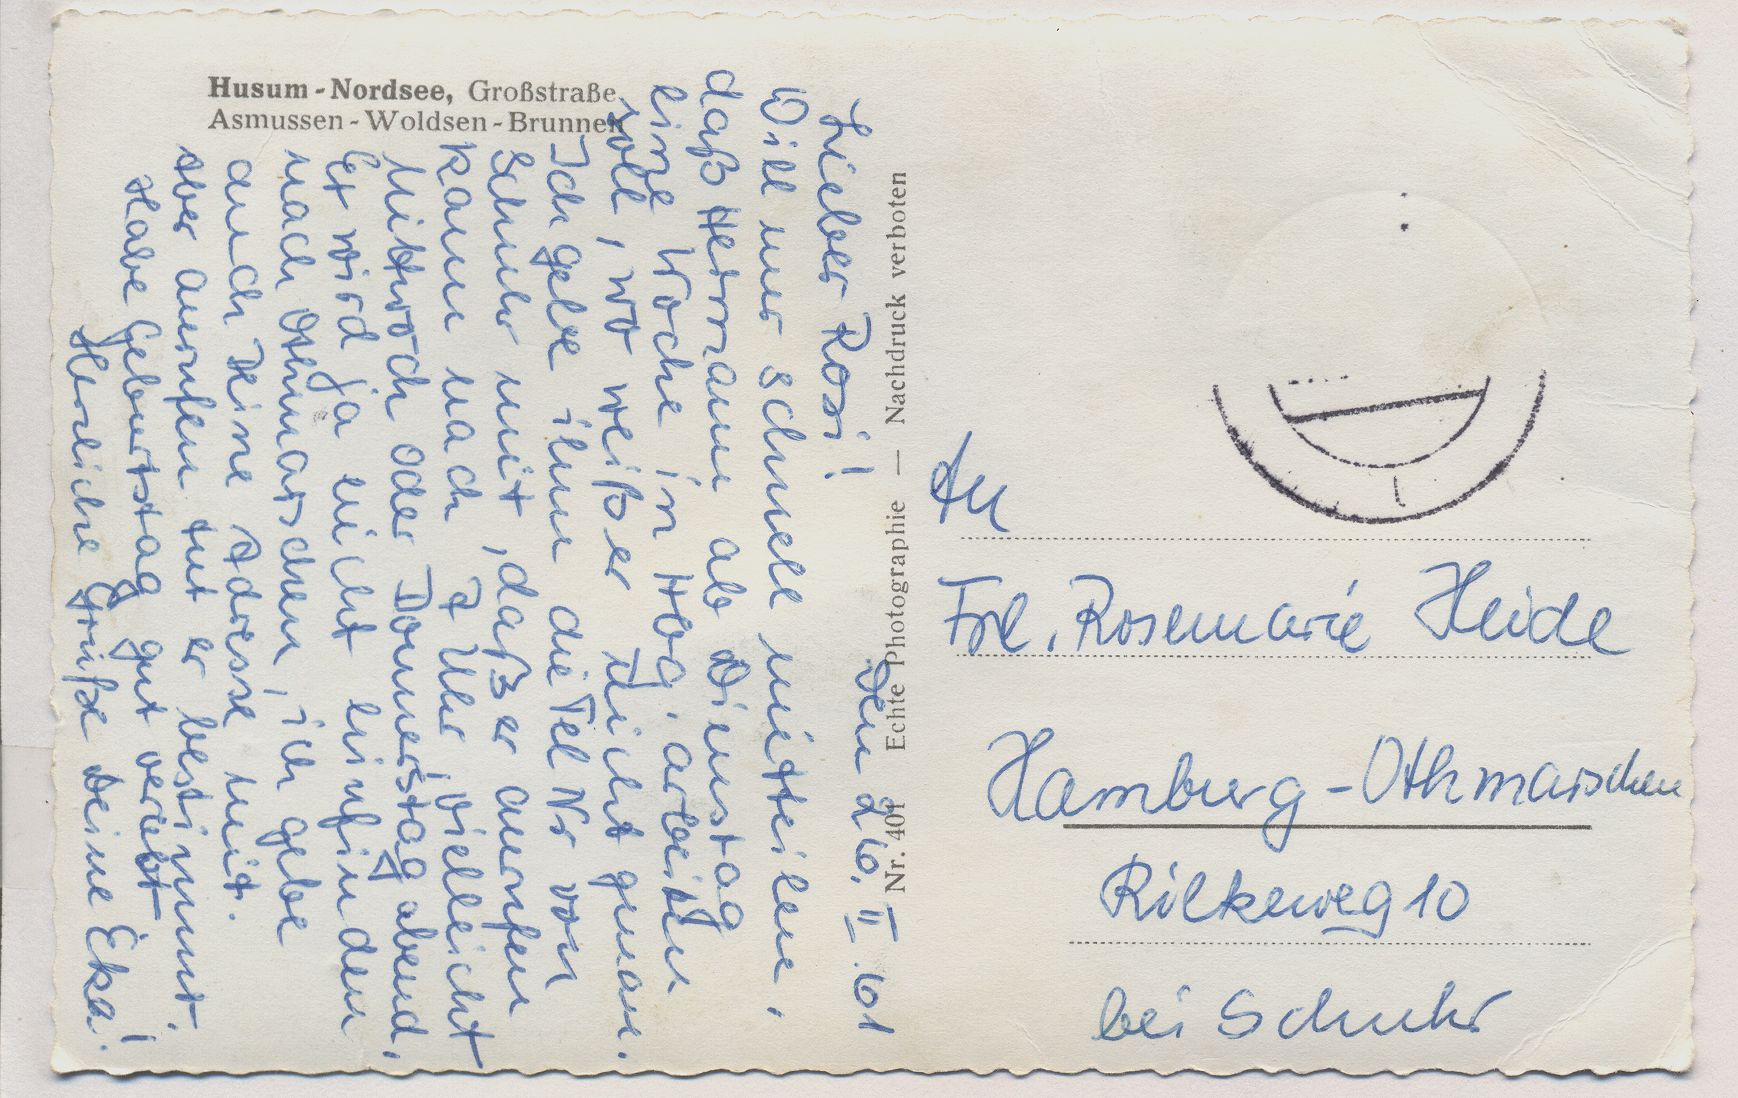 Husum-Nordsee, Großstraße
Asmussen-Woldsen-Brunnen
Nr. 401 Echte Photographie — Nachdruck verboten
Den 26. II. 61
Lieber Rosi!
Will nur schnell mitteilen,
daß Hermann ab Dienstag
eine Woche in Hbg. arbeiten
soll, wo weiß er nicht genau.
Ich gebe ihm die Tel Nr von
Schuhr mit, daß er anrufen
kann nach 7 Uhr, vielleicht
Mittwoch oder Donnerstag abend.
Er wird ja nicht hinfinden
nach Othmarschen, ich gebe
auch Deine Adresse mit.
Aber anrufen tut er bestimmt.
Habe Geburtstag gut verlebt!
Herzliche Grüße Deine Eka.
An
Frl. Rosemarie Heide
Hamburg-Othmarschen
Rilkeweg 10
bei Schuhr